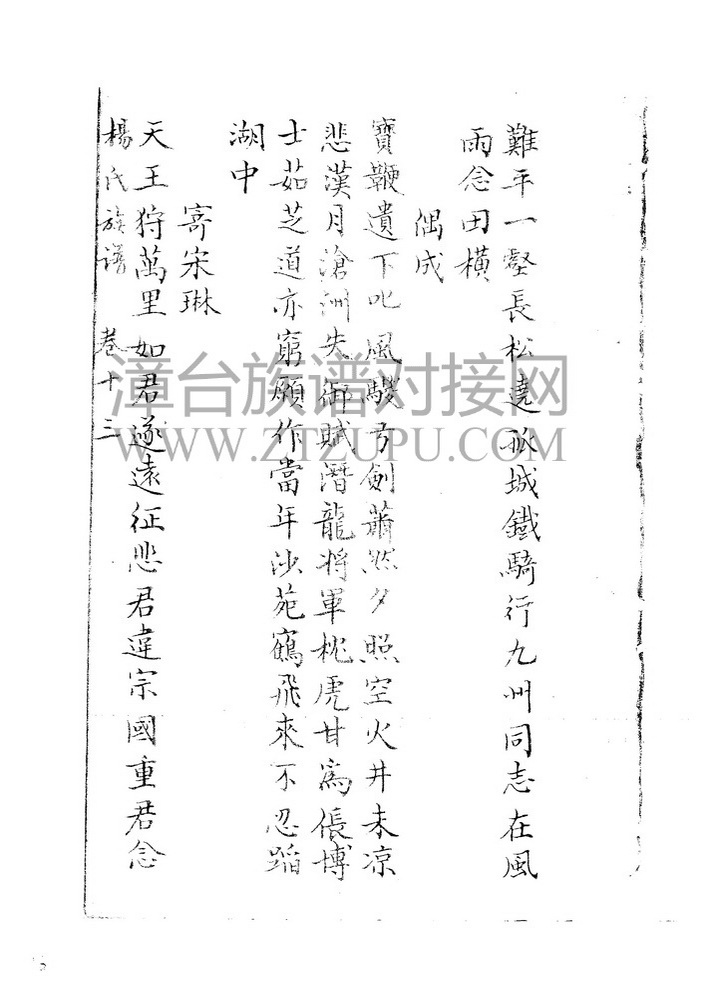 難平一壑長松遶孤城鐵騎行九州同志在風
雨念田橫
偶成
寶鞭遺下吡風騣方劍蕭然夕照空火井未凉
悲漢月滄洲失御賦潛龍將軍枕虎甘爲倀博
士茹芝道亦窮願作當年沙苑鶴飛來不忍蹈
湖中
寄宋琳
天王狩萬里如君遂遠征悲君違宗國重君念
楊氏族譜 卷十三
漳台族谱对接网
WWW.ZTZUPU.COM